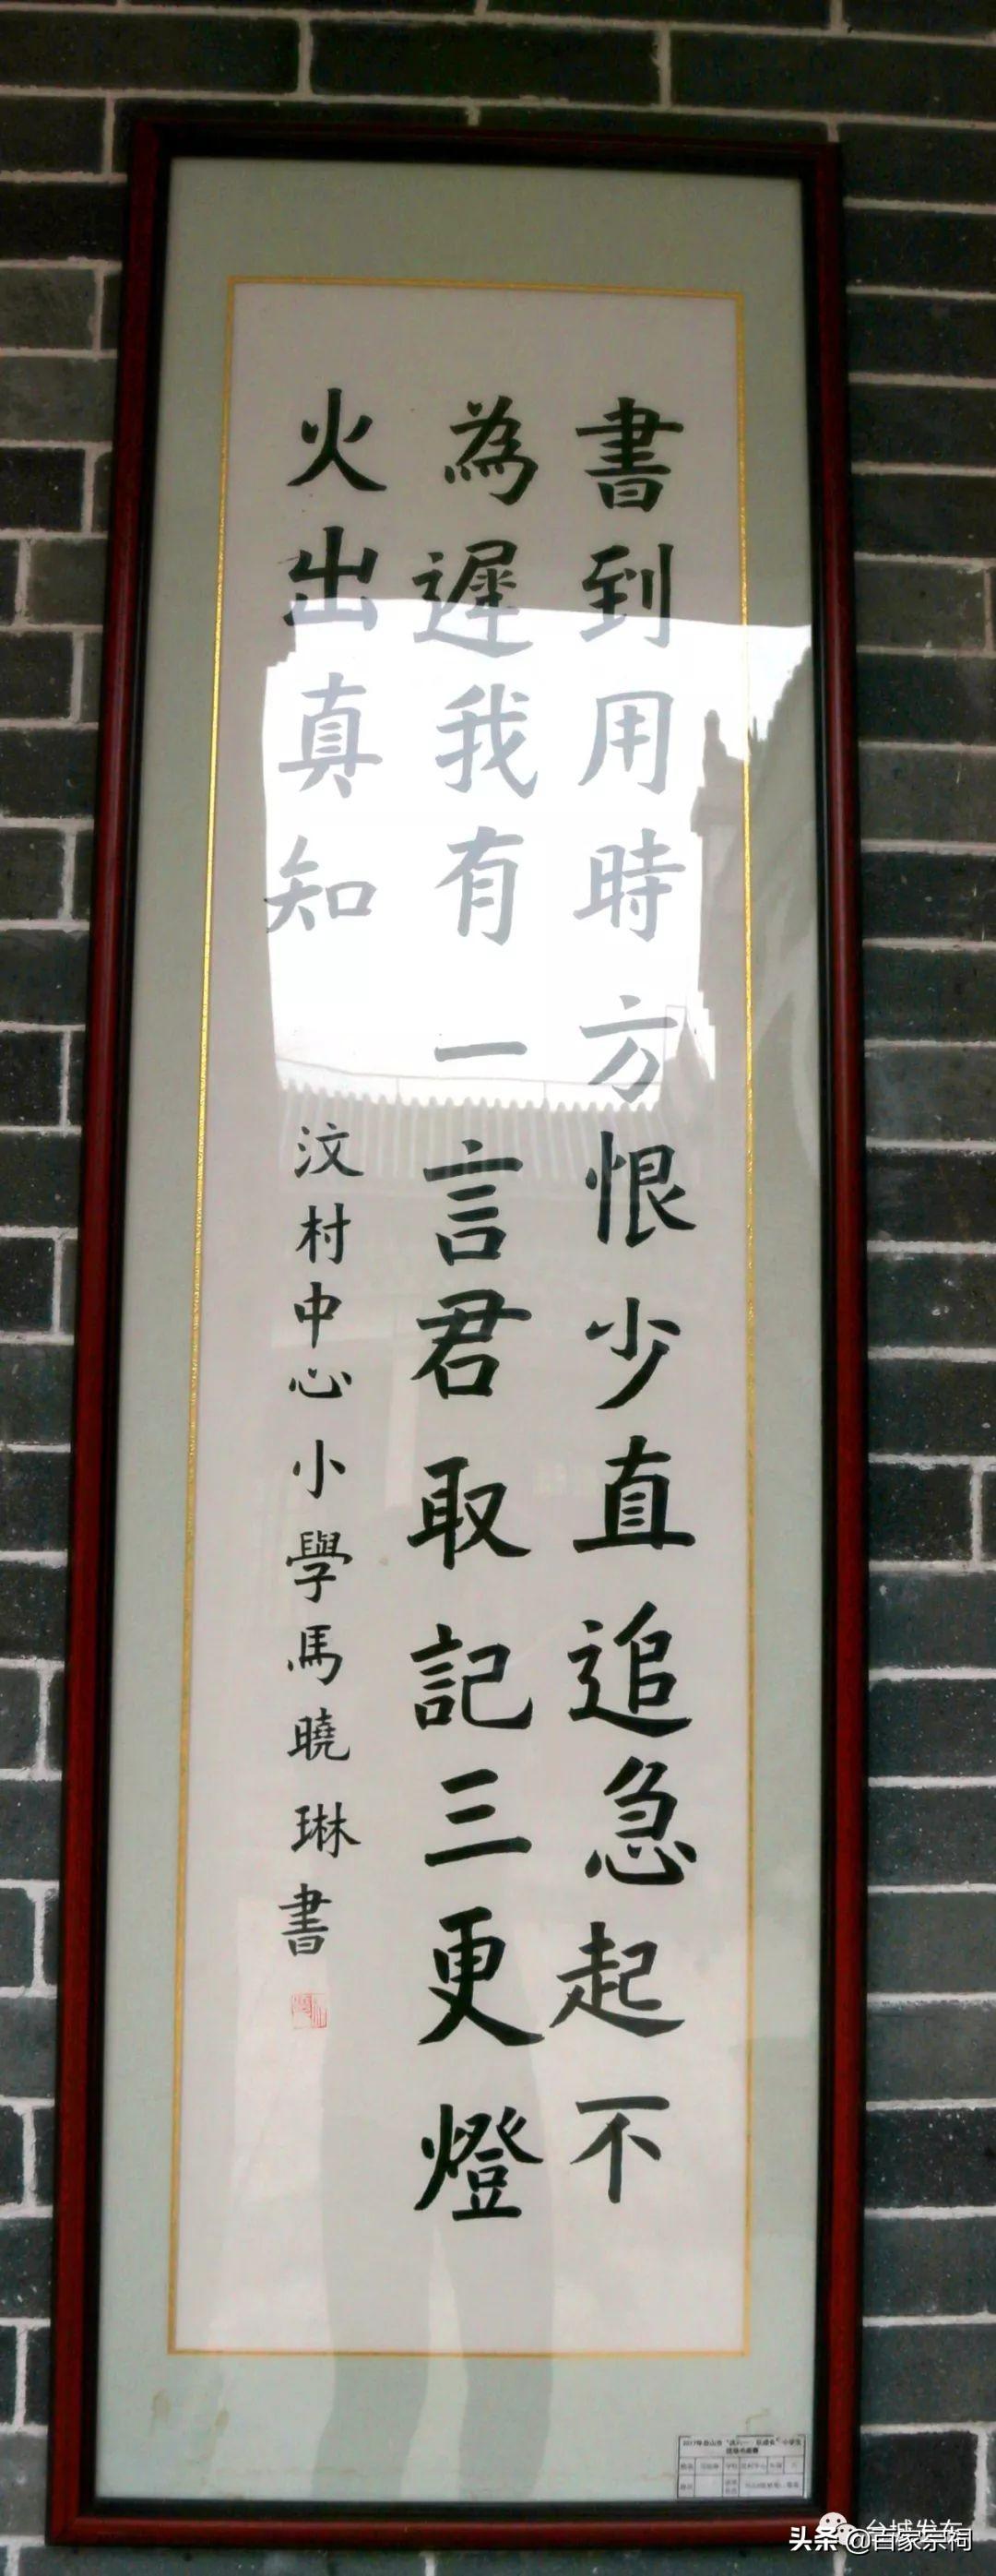 書到用時方恨少直追急起不
為遲我有一言君取記三更燈
火出真知
汶村中心小學馬曉琳書
台城发布
头条@百家宗祠